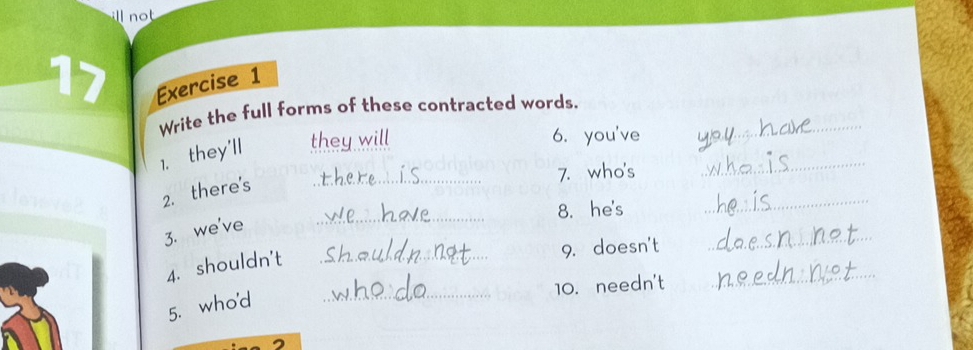 ill not
17
Exercise 1
Write the full forms of these contracted words.
1. they'll they will
2. there's there is
3. we've we have
4. shouldn't shouldn not
5. who'd who do
6. you've you have
7. who's who is
8. he's he is
9. doesn't doesn not
10. needn't needn not
2